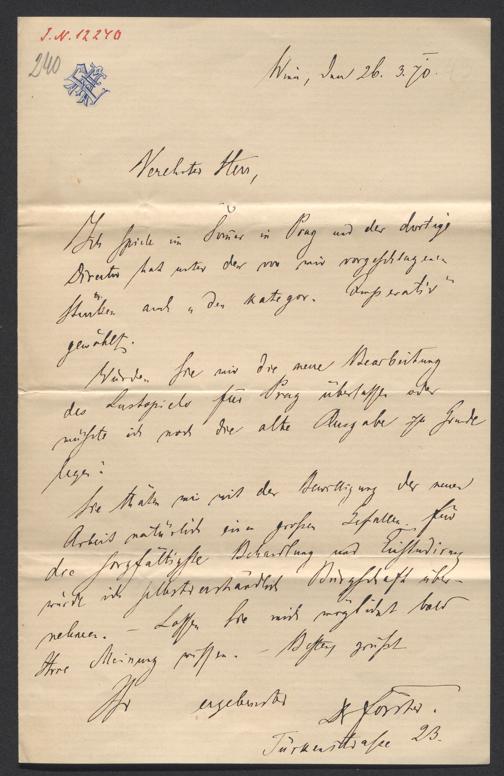 J.N. 12240
240
Wien, den 26. 3. 70.
Verehrter Herr,
Ich spiele im Sommer in Prag und der dortige
Director hat unter den von mir vorgeschlagenen
Stücken auch „den kategor. Imperativ"
gewählt.
Würden Sie mir die neue Bearbeitung
des Lustspiels für Prag überlassen oder
müßte ich noch die alte Ausgabe zu Grunde
legen?
Sie thäten mir mit der Bewilligung der neuen
Arbeit natürlich einen großen Gefallen. Für
die sorgfältigste Behandlung und Einstudirung
würde ich selbstverständlich Bürgschaft über-
nehmen. – Lassen Sie mich möglichst bald
Ihre Meinung wissen. – Bestens grüßt
Ihr ergebenster
Dr Förster.
Türkenstrasse 23.